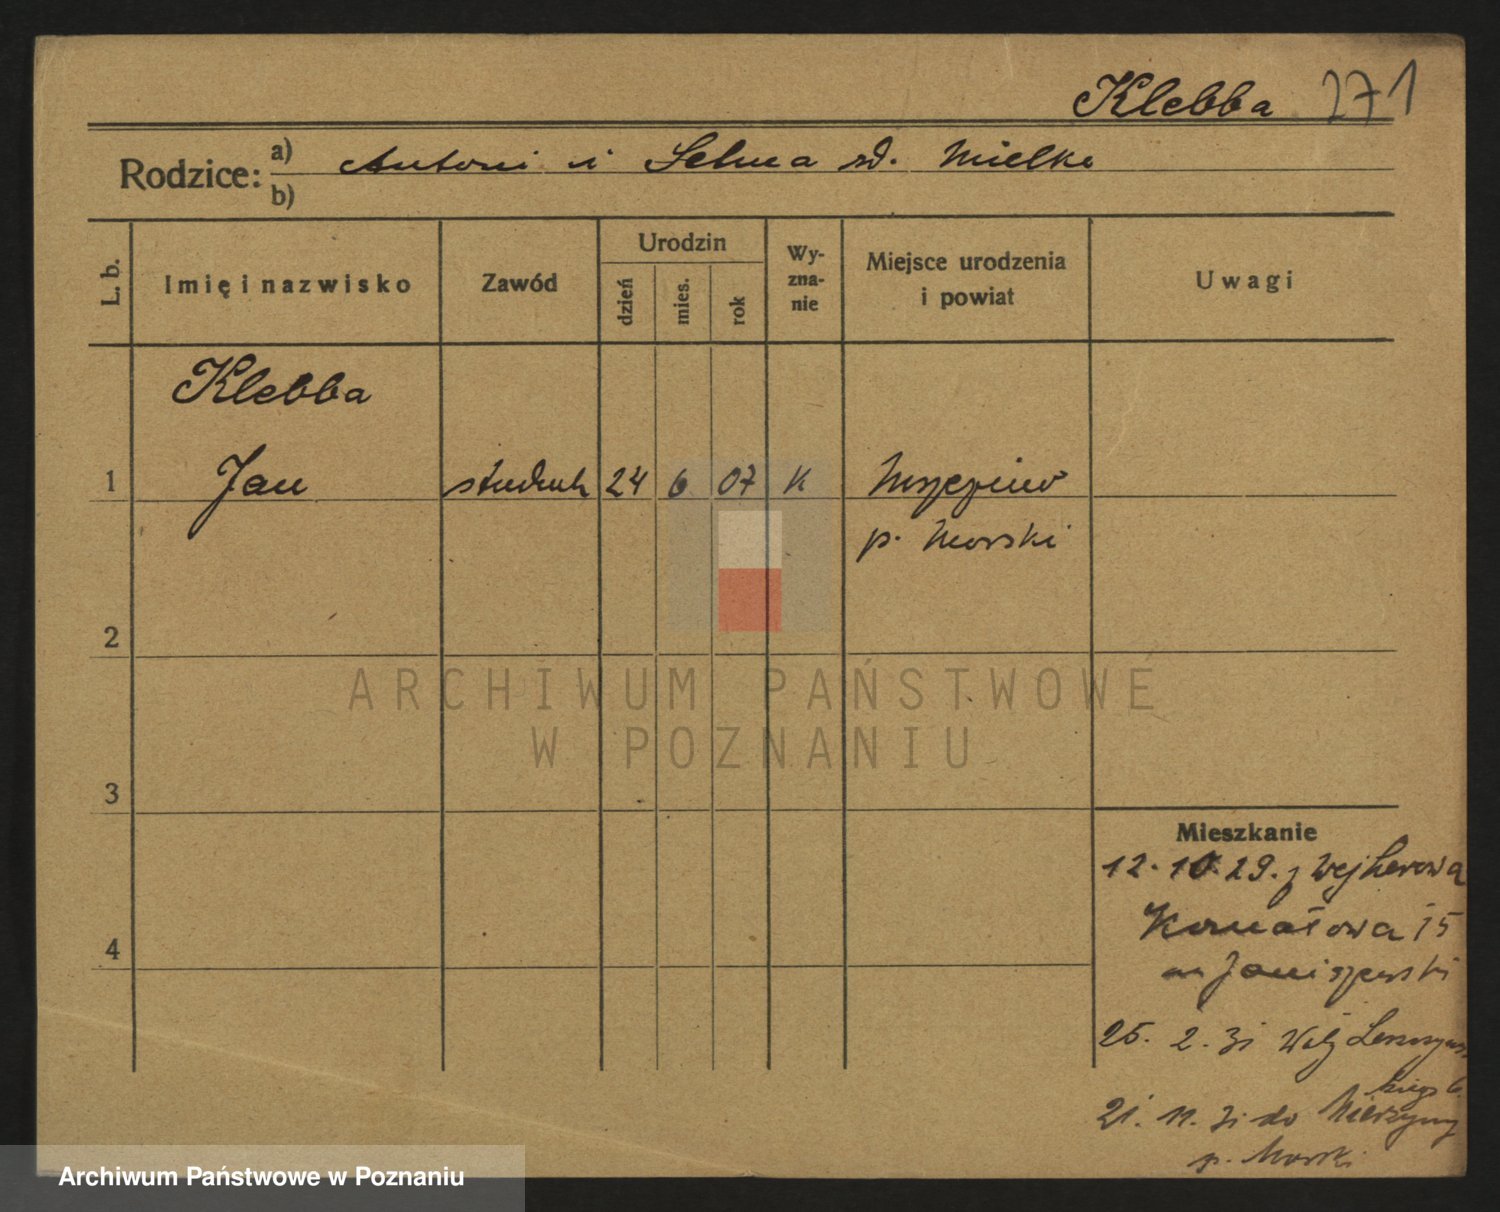 Klebba 271
Rodzice: a) Antoni i Selma zd. Mielke
b)
L. b. Imię i nazwisko Zawód Urodzin Wy-zna-nie Miejsce urodzenia i powiat Uwagi
dzień mies. rok
Klebba
1 Jan student 24 6 07 K
p. Morski
2
ARCHIWUM PAŃSTWOWE
W POZNANIU
3
Mieszkanie
12. 10. 29. z Wejherowa
15
4
Janiszewski
25. 2. 31
21. 11. 31 do
p. Morski
Archiwum Państwowe w Poznaniu